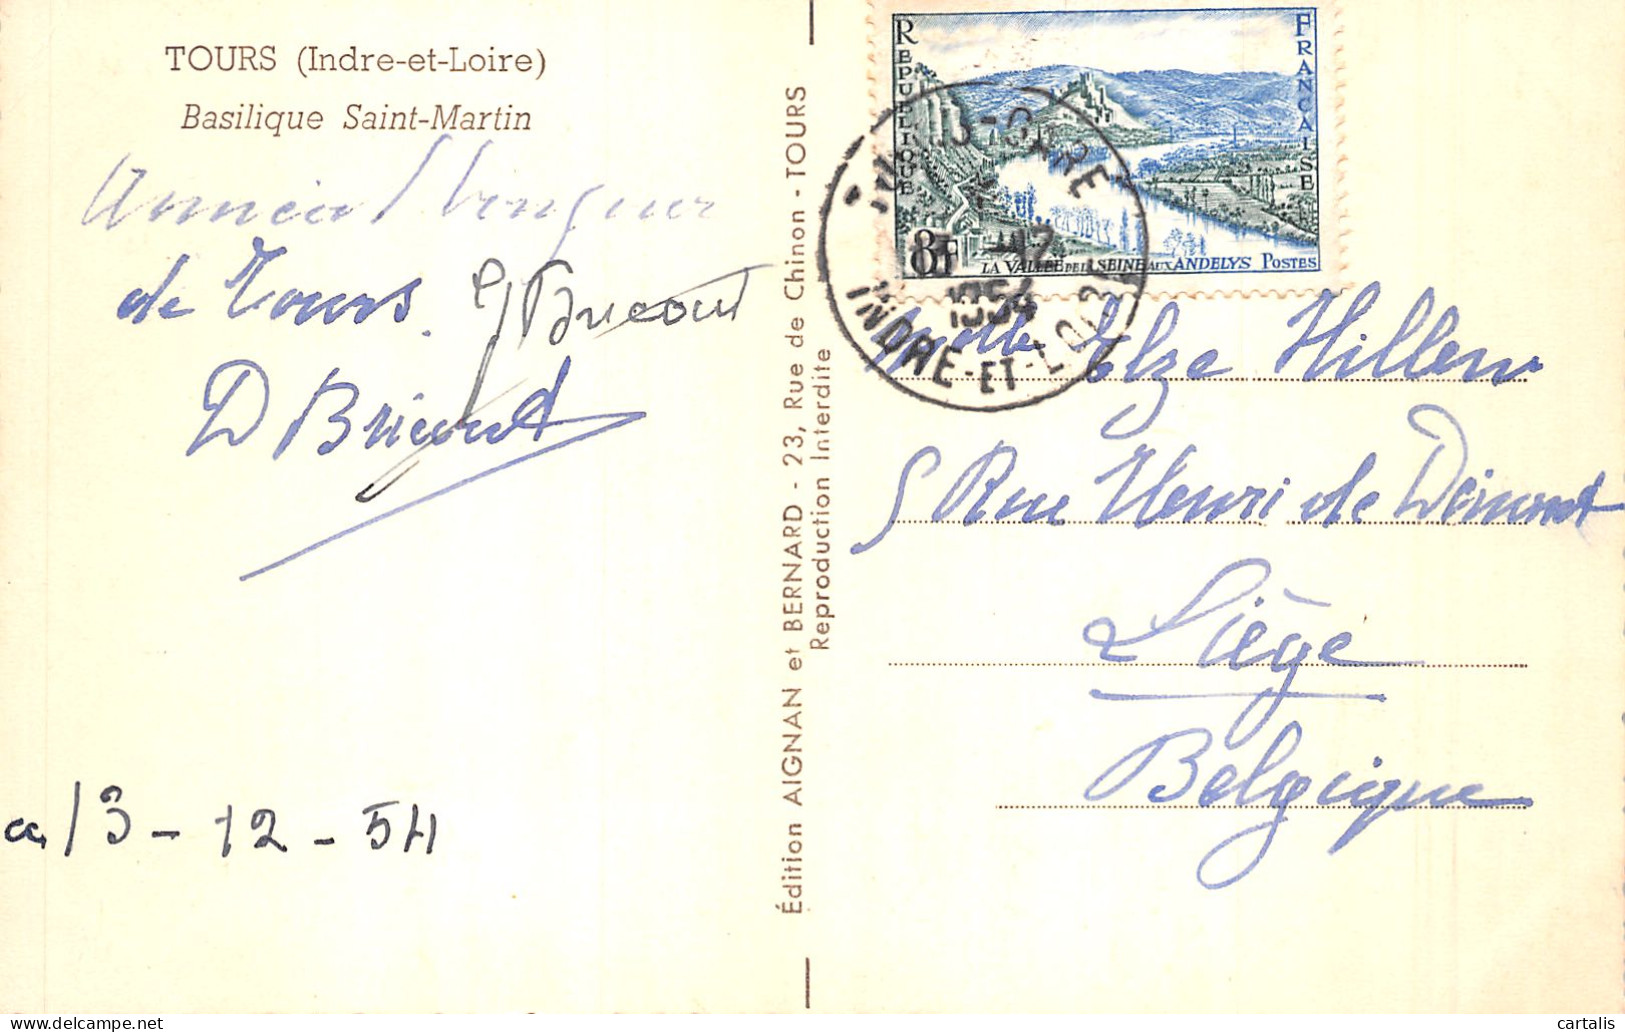 TOURS (Indre-et-Loire)
Basilique Saint-Martin
de Tours.
Bricout
D Bricout
13-12-54
Édition AIGNAN et BERNARD - 23, Rue de Chinon - TOURS
Reproduction Interdite
REPUBLIQUE FRANCAISE
8F
LA VALLÉE DE LA SEINE AUX ANDELYS POSTES
TOURS-GARE
12
1954
INDRE-ET-LOIRE
Melle Elze Hillen
5 Rue Henri de Dinant
Liège
Belgique
cartalis
www.delcampe.net